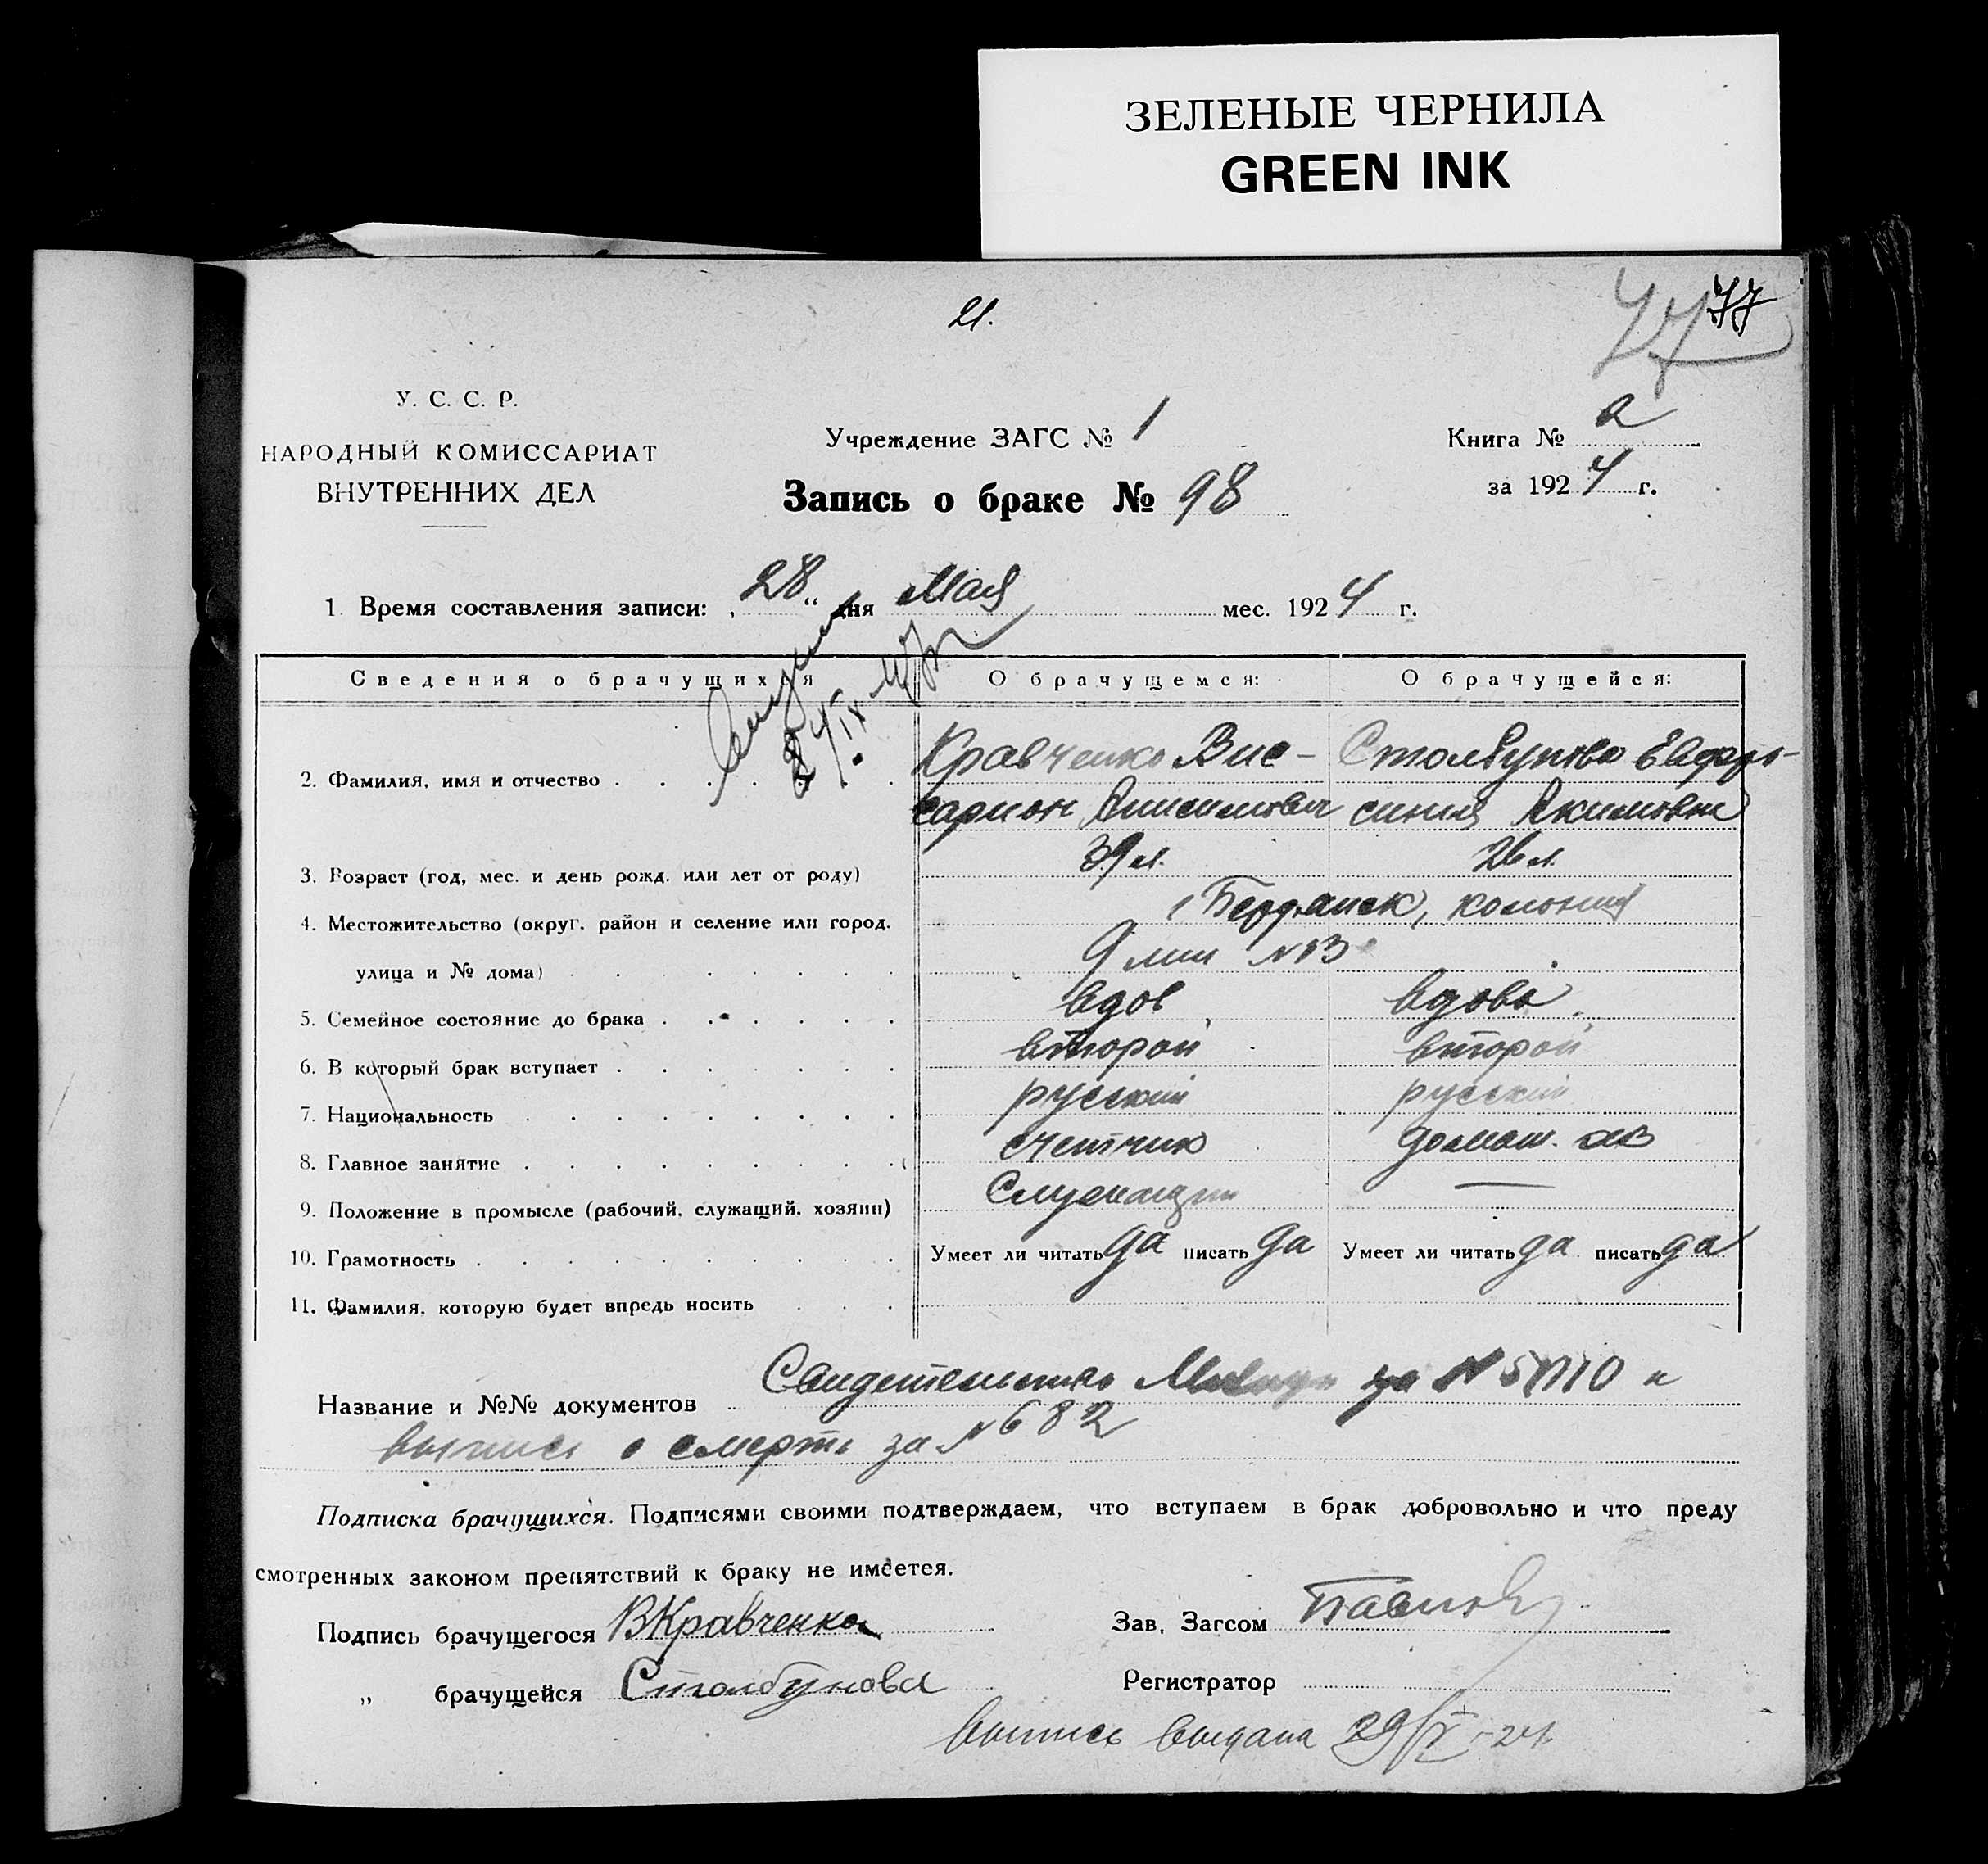 ЗЕЛЕНЫЕ ЧЕРНИЛА
GREEN INK
21.
77
У. С. С. Р.
НАРОДНЫЙ КОМИССАРИАТ
ВНУТРЕННИХ ДЕЛ
Учреждение ЗАГС № 1
Запись о браке № 98
Книга № 2
за 1924 г.
1. Время составления записи: „28“ дня Мая мес. 1924 г.
Сведения о брачущихся О брачущемся: О брачущейся:
2. Фамилия, имя и отчество Кравченко Вис- Столбунова Евфро-
сарион Анисимович синия Акимовна
3. Возраст (год, мес. и день рожд. или лет от роду) 39 л. 26 л.
4. Местожительство (округ, район и селение или город, Бердянск, колония
улица и № дома) 9 лин №13
5. Семейное состояние до брака вдов вдова
6. В который брак вступает второй второй
7. Национальность русский русский
8. Главное занятие счетчик домаш. хоз
9. Положение в промысле (рабочий, служащий, хозяин) Служащий —
10. Грамотность Умеет ли читать да писать да Умеет ли читать да писать да
11. Фамилия, которую будет впредь носить
Название и №№ документов Свидетельство за № и
выпись о смерти за №682
Подписка брачущихся. Подписями своими подтверждаем, что вступаем в брак добровольно и что преду
смотренных законом препятствий к браку не имеетея.
Подпись брачущегося ВКравченко Зав. Загсом
„ брачущейся Столбунова Регистратор
Выпись выдана 29/V-24.